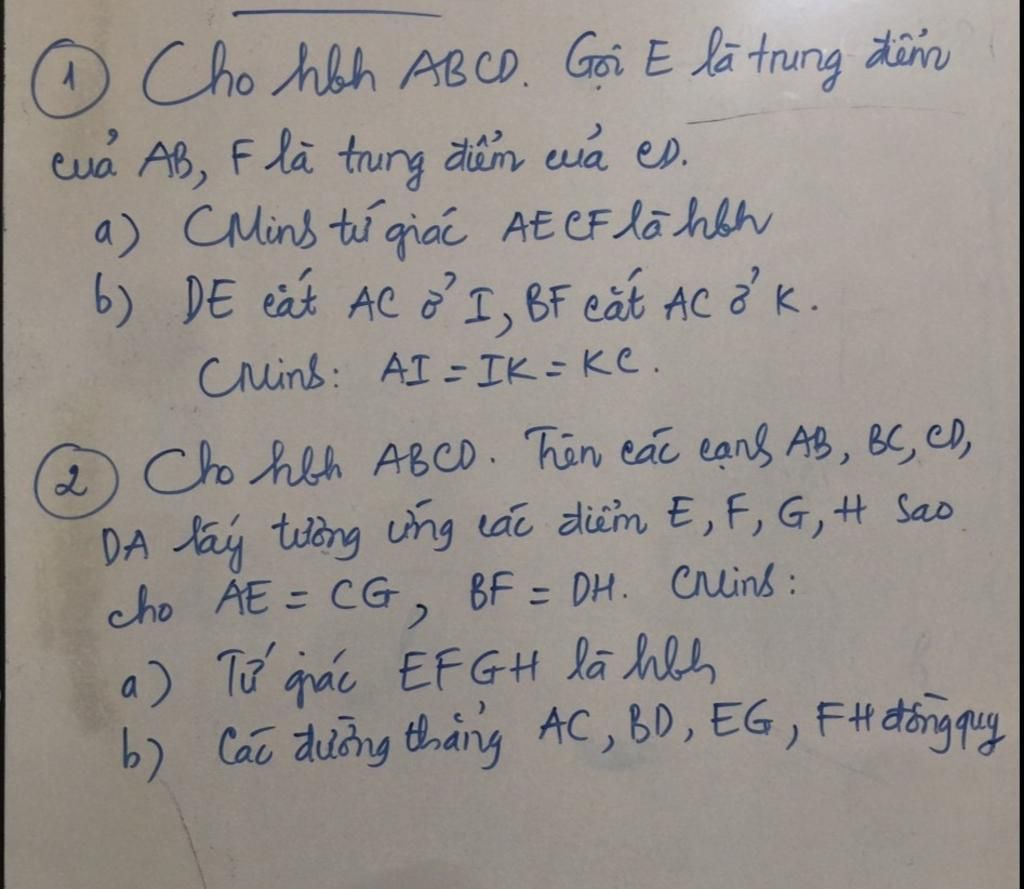 ① Cho hbh ABCD. Gọi E là trung điểm
của AB, F là trung điểm của CD.
a) CMinh tứ giác AECF là hbh
b) DE cắt AC ở I, BF cắt AC ở K.
CMinh: AI = IK = KC.
② Cho hbh ABCD. Trên các cạnh AB, BC, CD,
DA lấy tương ứng các điểm E, F, G, H sao
cho AE = CG, BF = DH. CMinh:
a) Tứ giác EFGH là hbh
b) Các đường thẳng AC, BD, EG, FH đồng quy